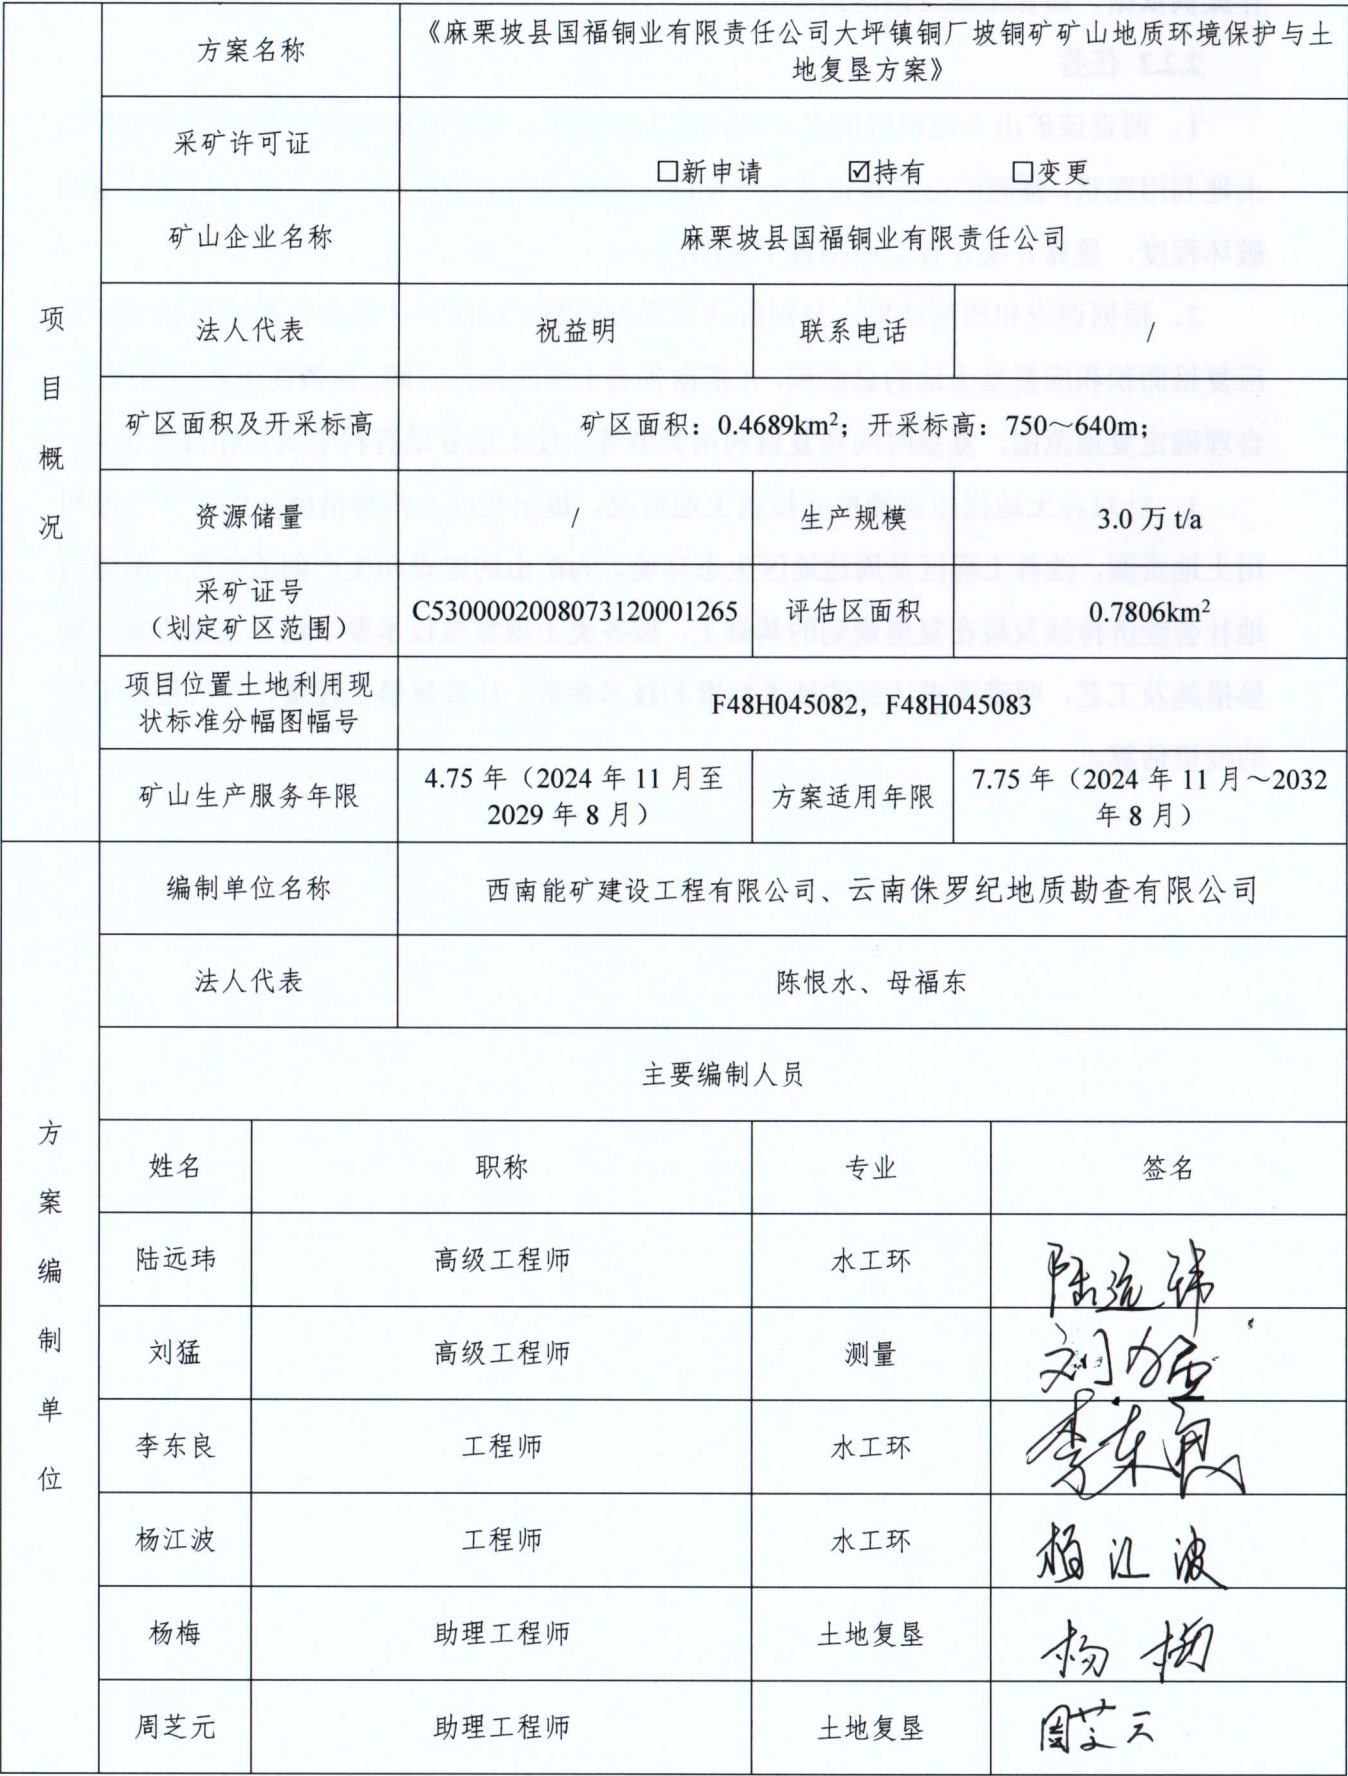 方案名称
《麻栗坡县国福铜业有限责任公司大坪镇铜厂坡铜矿矿山地质环境保护与土
地复垦方案》
采矿许可证
☐新申请 ☑持有 ☐变更
矿山企业名称
麻栗坡县国福铜业有限责任公司
项目概况
法人代表
祝益明
联系电话
/
矿区面积及开采标高
矿区面积：0.4689km²；开采标高：750～640m；
资源储量
/
生产规模
3.0 万 t/a
采矿证号
（划定矿区范围）
C5300002008073120001265
评估区面积
0.7806km²
项目位置土地利用现
状标准分幅图幅号
F48H045082，F48H045083
矿山生产服务年限
4.75 年（2024 年 11 月至
2029 年 8 月）
方案适用年限
7.75 年（2024 年 11 月～2032
年 8 月）
方案编制单位
编制单位名称
西南能矿建设工程有限公司、云南侏罗纪地质勘查有限公司
法人代表
陈恨水、母福东
主要编制人员
姓名 职称 专业 签名
陆远玮 高级工程师 水工环 陆远玮
刘猛 高级工程师 测量 刘猛
李东良 工程师 水工环 李东良
杨江波 工程师 水工环 杨江波
杨梅 助理工程师 土地复垦 杨梅
周芝元 助理工程师 土地复垦 周芝元